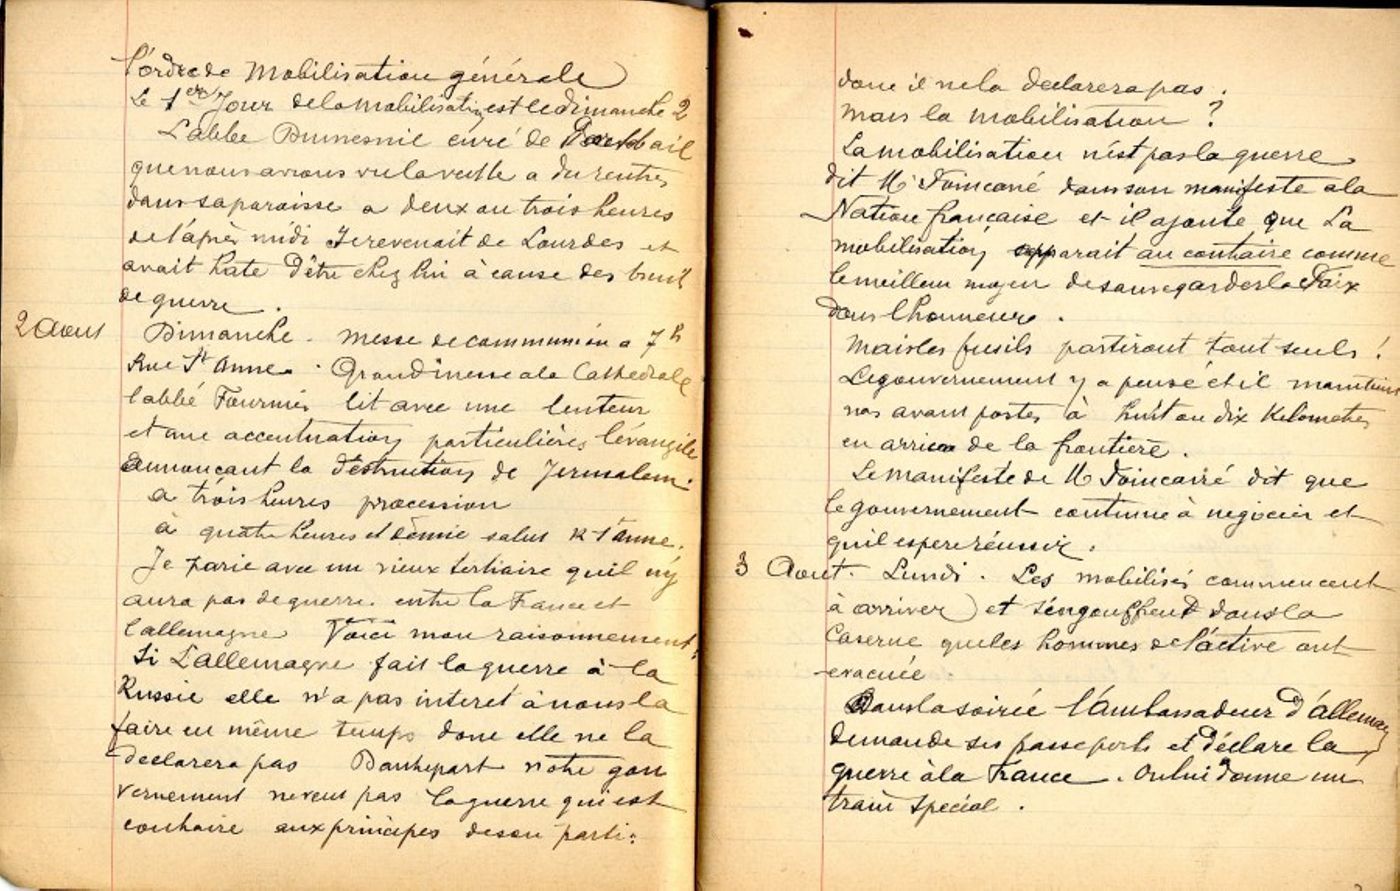 l'ordre de Mobilisation générale
Le 1er Jour de la mobilisation est le dimanche 2
L'abbé Dumesnil curé de
que nous avions vu la veille a du rentrer
dans sa paroisse a deux ou trois heures
de l'après midi Il revenait de Lourdes et
avait hate d'être chez lui à cause des bruit
de guerre.
2 Aout Dimanche. Messe de communion a 7h
Rue St Anne. Grand'messe a la Cathédrale
l'abbé Fournier lit avec une lenteur
et une accentuation particulières l'évangile
annonçant la destruction de Jerusalem.
a trois heures procession
à quatre heures et demie salut R St Anne.
Je parie avec un vieux tertiaire qu'il n'y
aura pas de guerre entre la France et
l'allemagne Voici mon raisonnement.
Si L'allemagne fait la guerre à la
Russie elle n'a pas interet à nous la
faire en même temps donc elle ne la
declarera pas D'autre part notre gou
vernement ne veut pas la guerre qui est
contraire aux principes de son parti.
donc il ne la declarera pas.
Mais la mobilisation ?
La mobilisation n'est pas la guerre
dit Mr Poincarré dans son manifeste a la
Nation française et il ajoute que La
mobilisation apparait au contraire comme
le meilleur moyen de sauvegarder la Paix
dans l'honneur.
Mais les fusils partiront tout seuls !
Le gouvernement y a pensé et il maintient
nos avant postes à huit ou dix Kilometres
en arriere de la frontière.
Le manifeste de Mr Poincarré dit que
le gouvernement continue à negocier et
qu'il espere réussir.
3 Aout. Lundi. Les mobilisés commencent
à arriver et s'engouffrent dans la
Caserne que les hommes de l'active ont
evacuée.
Dans la soirée l'Ambassadeur d'allemag
demande ses passeports et déclare la
guerre à la France. On lui donne un
train spécial.